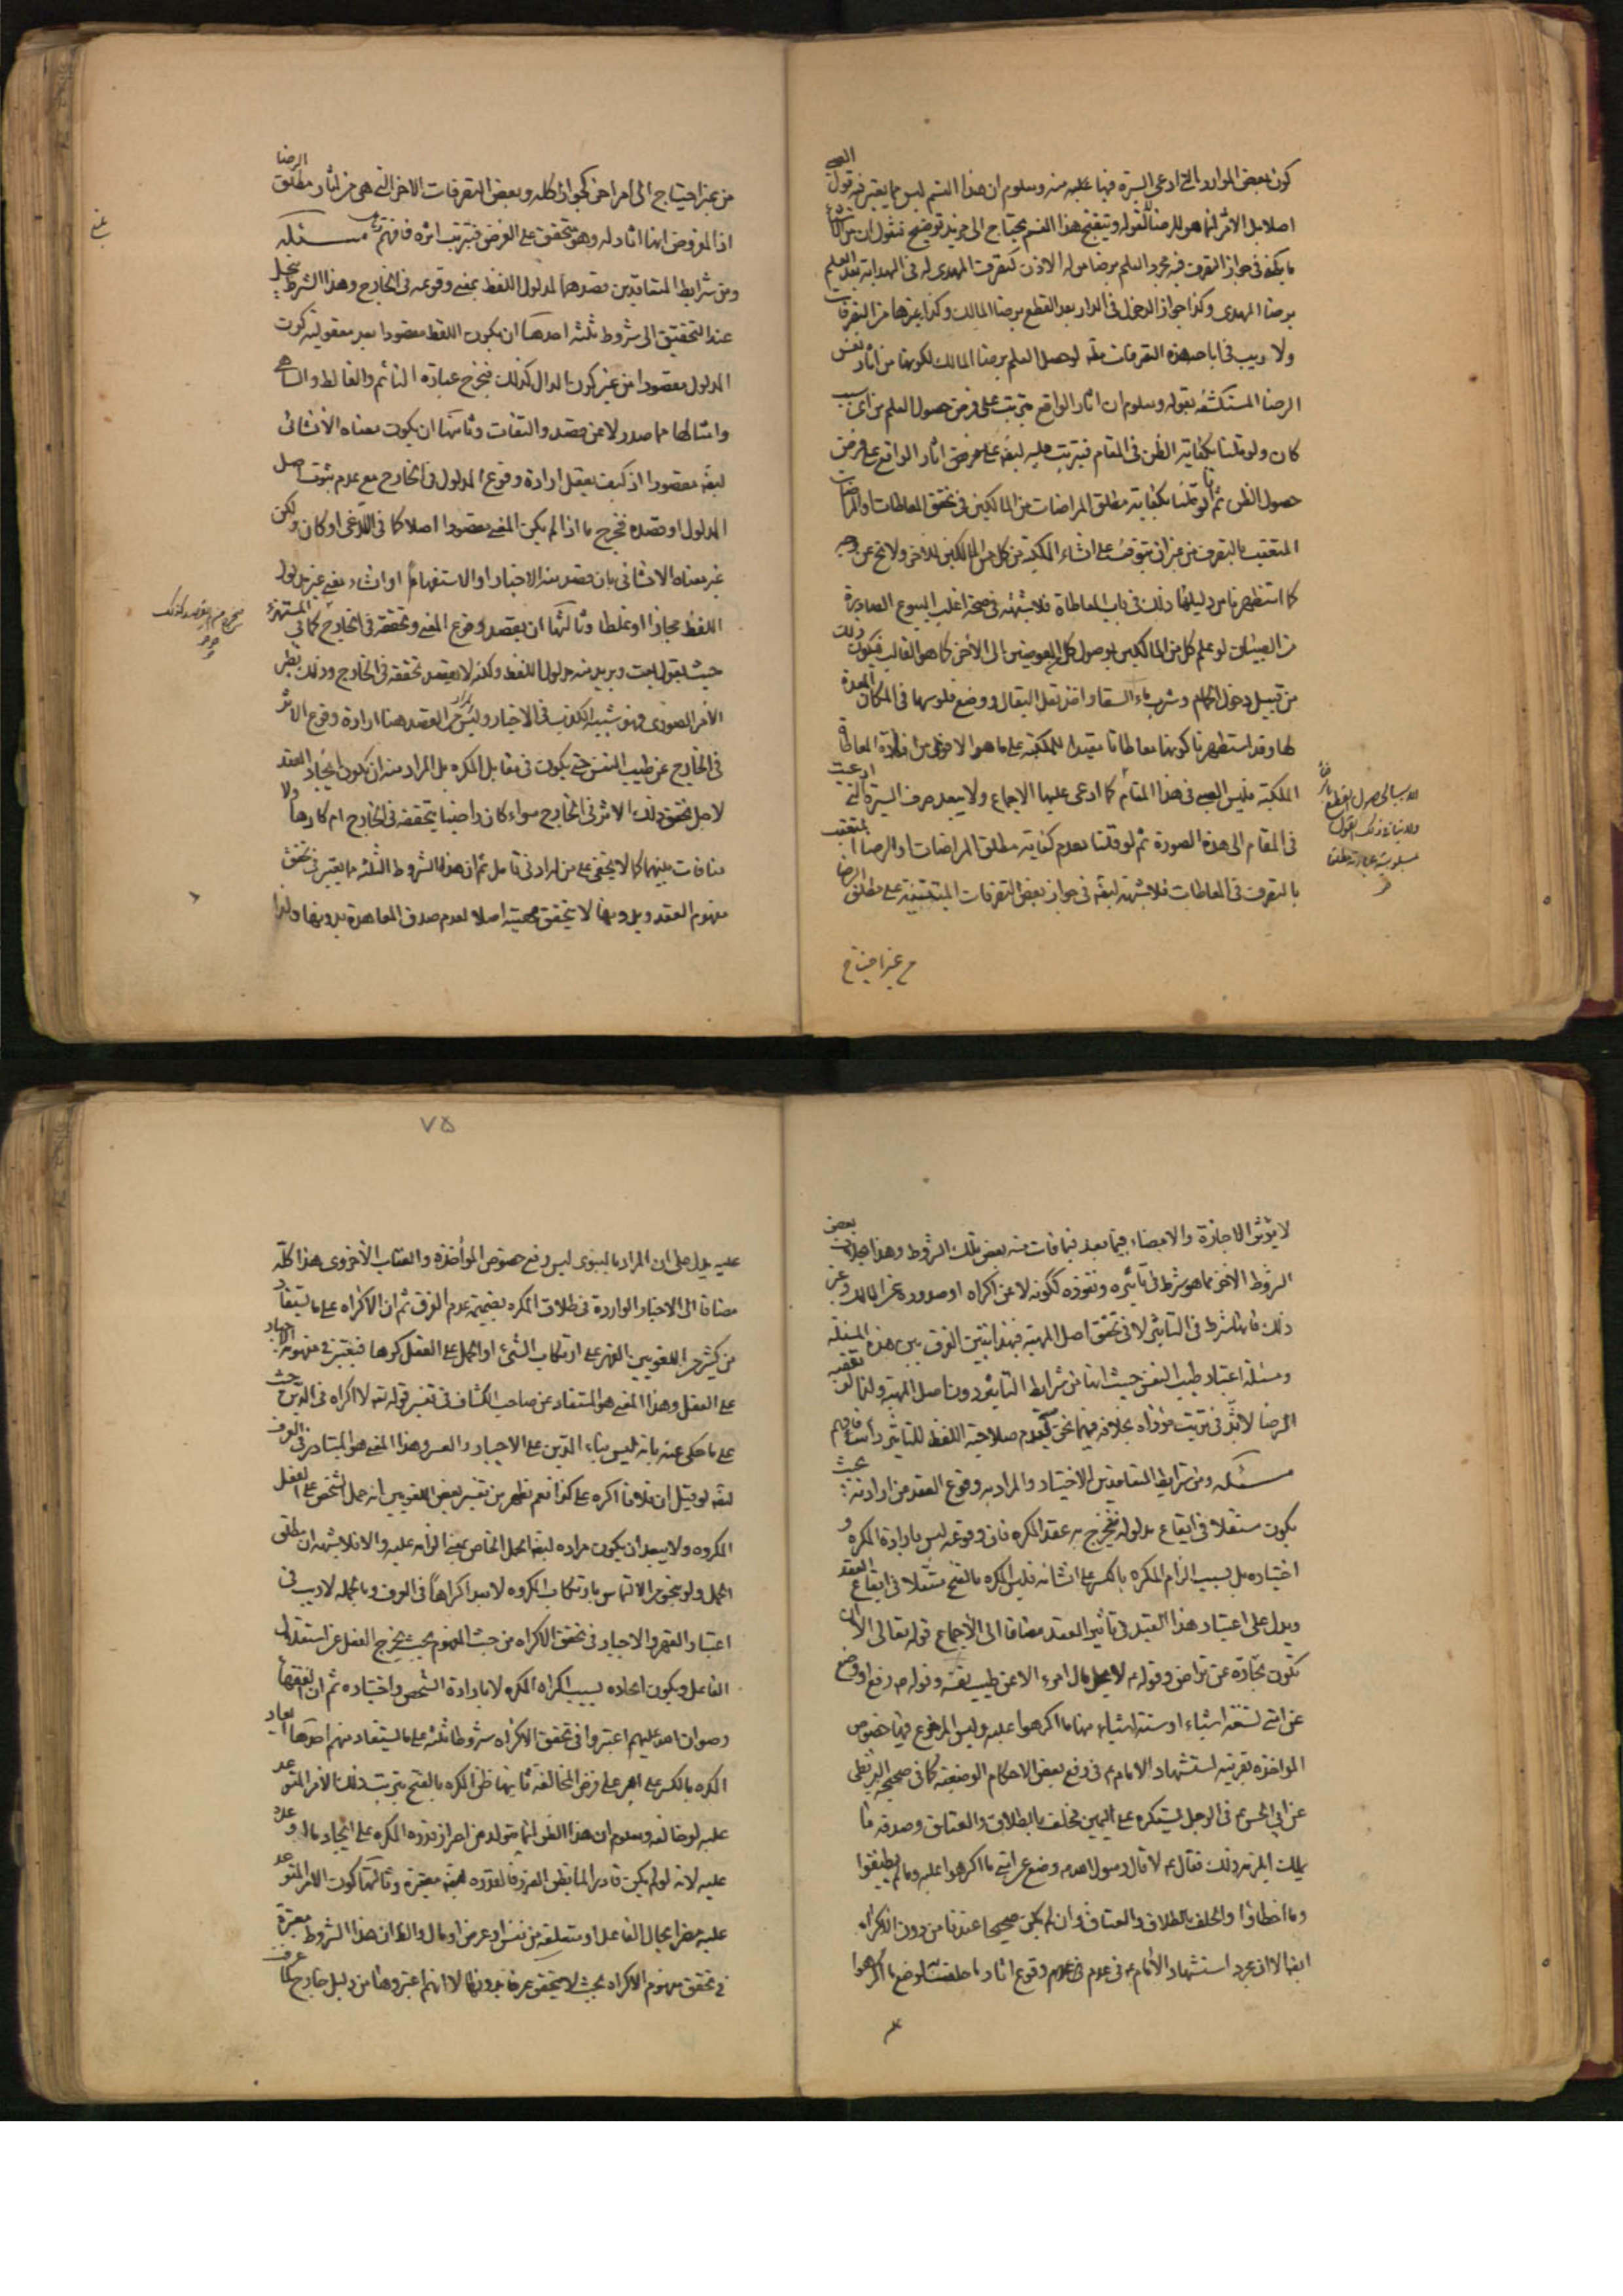 كون بعض الموارد التي ادعى السيرة فيها عليه منه ومعلوم ان هذا القسم ليس مما يعتبر فيه قول الصبي
اصلا بل الاثر انما هو للرضا لقوله وتنقيح هذا القسم يحتاج الى مزيد توضيح فنقول ان من
ما يكفي في جواز التصرف فيه مجرد العلم برضا من له الاذن كتصرف المهدى له في الهداية بعد العلم
برضا المهدي وكذا جواز الدخول في الدار بعد القطع برضا المالك وكذا غيرها من التصرفات
ولا ريب في اباحة هذه التصرفات لو حصل العلم برضا المالك لكونها من اثار نفس
الرضا المستكشفة بقوله ومعلوم ان اثار الواقع يترتب على فرض حصول العلم من اي سبب
كان ولو قلنا بكفاية الظن في المقام فيترتب عليه ايضه على فرض اثار الواقع على فرض
حصول الظن ثم انا لو قلنا بكفاية مطلق المراضات من المالكين في تحقق المعاطات
المتعقب بالتصرف من غير ان يتوقف على انشاء الملكية من كل من المالكين للاخر ولا يخ عن وجه
كما استظهرنا من دليلها ذلك في باب المعاطاة فلا شبهة في صحة اغلب البيوع الصادرة
من الصبيان لو علم كل من المالكين بوصول كل العوضين الى الاخر كما هو الغالب فيكون ذلك
من قبيل دخول الحمام وشرب ماء السقا واخذ بقل البقال ووضع فلوسها في المكان المعدة
لها وقد استظهرنا كونها معاطاتا مفيدا للملكية على ما هو الاقوى من افادة المعاطاة
الملكية فليس الصبي في هذا المقام كما ادعى عليها الاجماع ولا يبعد صرف السيرة التي ادعيت
في المقام الى هذه الصورة ثم لو قلنا بعدم كفاية مطلق المراضات او الرضا المتعقب
بالتصرف في المعاطات فلا شبهة ايضه في جواز بعض التصرفات المبتنية على مطلق الرضا
من غير احتياج
من غير احتياج الى امر اخر كجواز اكله وبعض التصرفات الاخر التي هي من اثار مطلق الرضا
اذ المفروض انها اثار له وهو متحقق على الفرض فيترتب اثره فافهم مسئلة
ومن شرايط المتعاقدين قصدهما لمدلول اللفظ بمعنى وقوعه في الخارج وهذا الشرط ينحل
عند التحقيق الى شروط ثلثه احدها ان يكون اللفظ مقصودا بعد معقولية كون
المدلول مقصودا من غير كون الدال كذلك فيخرج عبارة النائم والغالط والساهي
وامثالها مما صدر لا عن قصد والتفات وثانيها ان يكون معناه الانشائي
ايضه مقصودا اذ كيف يعقل ارادة وقوع المدلول في الخارج مع عدم ثبوت اصل
المدلول او قصده فيخرج ما اذا لم يكن المعنى مقصودا اصلا كما في اللاغي او كان ولكن
غير معناه الانشائي بان قصد منه الاخبار او الاستفهام او انشاء معنى غير مدلول
اللفظ مجازا او غلطا وثالثها ان يقصد وقوع المعنى وتحققه في الخارج كما في المستهزء
حيث يقول بعت ويريد منه مدلول اللفظ ولكنه لا يقصد تحققه في الخارج وذلك نظير
الامر الصوري وهو شبيه الكذب في الاخبار وليس مراد من العقد هنا ارادة وقوع الاثر
في الخارج عن طيب النفس حتى يكون في مقابل المكره بل المراد منه ان يكون ايجاد العقد
لاجل تحقق ذلك الاثر في الخارج سواء كان راضيا بتحققه في الخارج ام كارها ولا
منافات بينهما كما لا يخفى على من له ادنى تامل ثم ان هذه الشروط الثلثه مما يعتبر في تحقق
مفهوم العقد وبدونها لا يتحقق مهيته اصلا لعدم صدق المعاهدة بدونها ولذا
٧٥
لا يؤثر الاجازة والامضاء فيما بعد فيما فات منه بعض تلك الشروط وهذا بخلاف بعض
الشروط الاخر مما هو شرط في تأثيره ونفوذه ككونه لا عن اكراه او صدوره عن المالك وغير
ذلك فانها شرط في التاثير لا في تحقق اصل المهية فبهذا تبين الفرق بين هذه المسئلة
ومسئلة اعتبار طيب النفس حيث انها من شرايط التاثير دون اصل المهية ولذا لو تعقبه
الرضا لاثر في ترتيب مؤداه بخلافه فيما نحن فيه لعدم صلاحية اللفظ للتاثير راسا فافهم
مسئلة ومن شرايط المتعاقدين الاختيار والمراد به وقوع العقد من ارادته بحيث
يكون مستقلا في ايقاع مدلوله فيخرج به عقد المكره فان وقوعه ليس بارادة المكره و
اختياره بل بسبب الزام المكره بالكسر على انشائه فليس المكره بالفتح مستقلا في ايقاع العقد
ويدل على اعتبار هذا القيد في تأثير العقد مضافا الى الاجماع قوله تعالى الا ان
تكون تجارة عن تراض وقوله ع لا يحل مال امرء الا عن طيب نفسه وقوله ص رفع او وضع
عن امتي تسعة اشياء او ستة اشياء منها ما اكرهوا عليه وليس المرفوع فيها خصوص
المواخذة بقرينة استشهاد الامام ع في رفع بعض الاحكام الوضعية كما في صحيحة البزنطي
عن ابي الحسن ع في الرجل يستكره على اليمين فحلف بالطلاق والعتاق وصدقة ما
يملك ايلزمه ذلك فقال ع لا قال رسول الله ص وضع عن امتي ما اكرهوا عليه وما لم يطيقوا
وما اخطاؤا والحلف بالطلاق والعتاق وان لم يكن صحيحا عندنا من دون الاكراه
ايضا الا ان مجرد استشهاد الامام ع في عدم وقوع اثار ما حلف به لوضع ما اكرهوا
عليه يدل على ان المراد بالنبوي ليس رفع خصوص المؤاخذة والعقاب الاخروي هذا كله
مضافا الى الاخبار الواردة في طلاق المكره بضميمة عدم الفرق ثم ان الاكراه على ما يستفاد
من كثير من اللغويين القهر على ارتكاب الشئ او الحمل على الفعل كرها فيعتبر في مفهومه الاجبار
على الفعل وهذا المعنى هو المستفاد عن صاحب الكشاف في تفسير قوله تعالى لا اكراه في الدين حيث
على ما حكي عنه بانه ليس بناء الدين على الاجبار والقسر وهذا المعنى هو المتبادر في العرف
ايضه لو قيل ان فلانا اكره على كذا نعم نظهر من تفسير بعض اللغويين انه حمل الشخص على الفعل
المكروه ولا يبعد ان يكون مراده ايضه الحمل الخاص بمعنى الزامه عليه والا فلا شبهة ان مطلق
الحمل ولو بنحو من الالتماس بارتكاب المكروه لا يعد اكراها في العرف وبالجملة لا ريب في
اعتبار القهر والاجبار في تحقق الاكراه من حيث المفهوم بحيث يخرج الفعل عن استقلال
الفاعل ويكون ايجاده بسبب اكراه المكره لا بارادة الشخص واختياره ثم ان الفقهاء
رضوان الله عليهم اعتبروا في تحقق الاكراه شروطا ثلثه على ما يستفاد منهم احدها ايعاد
المكره بالكسر على امر على فرض المخالفة ثانيها ظن المكره بالفتح بترتب ذلك الامر المتوعد
عليه لو خالفه ومعلوم ان هذا الظن انما يتولد من احراز قدرة المكره على ايجاد ما اوعده
عليه لانه لو لم يكن قادرا لما يظن الضرر فالقدرة ايضه معتبرة وثالثها كون الامر المتوعد
عليه مضرا بحال الفاعل او متعلقه من نفس او عرض او مال والظ ان هذا الشروط معتبرة
في تحقق مفهوم الاكراه بحيث لا يتحقق عرفا بدونها لا انهم اعتبروها من دليل خارج كما عرفت